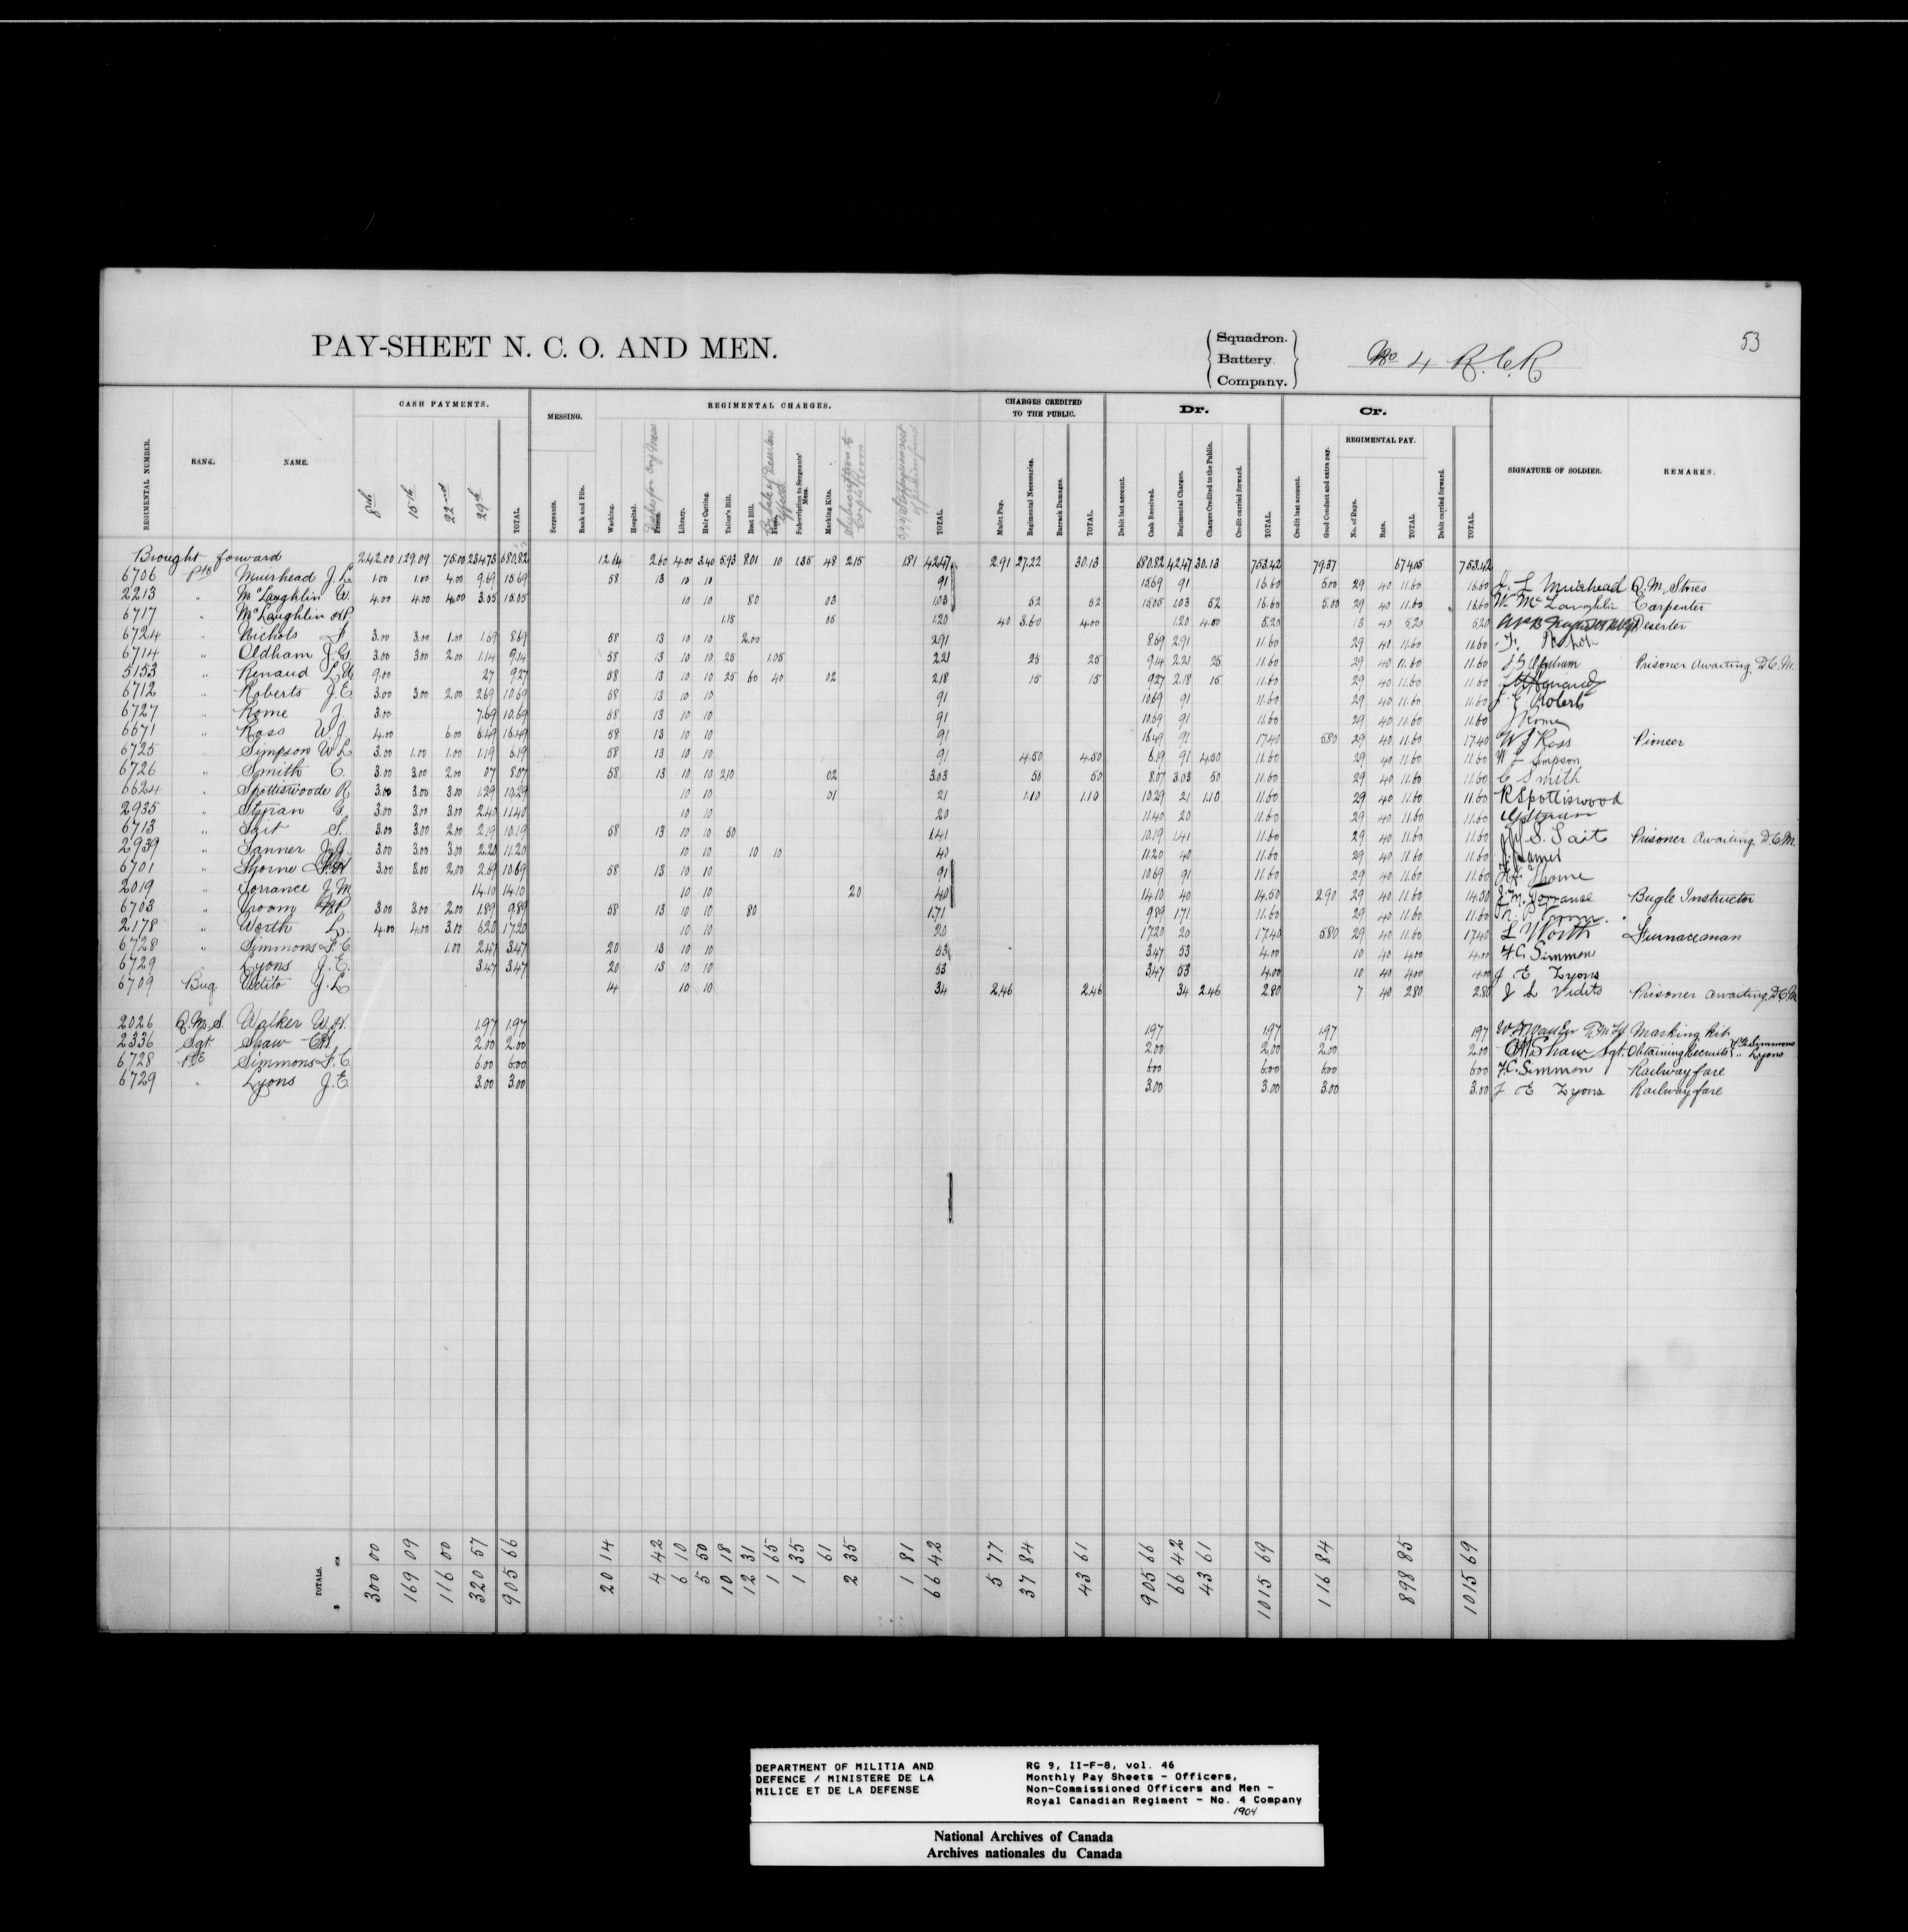 PAY-SHEET N. C. O. AND MEN.
Squadron.
Battery.
Company.
No 4 R.C.R
53
REGIMENTAL NUMBER. RANK. NAME. CASH PAYMENTS. 8th 15th 22nd 29th TOTAL. MESSING. Sergeants. Rank and File. REGIMENTAL CHARGES. Washing. Hospital. Library. Hair Cutting. Tailor's Bill. Boot Bill. Subscription to Sergeants' Mess. Marking Kits. TOTAL. CHARGES CREDITED TO THE PUBLIC. Mulct Pay. Regimental Necessaries. Barrack Damages. TOTAL. Dr. Debit last account. Cash Received. Regimental Charges. Charges Credited to the Public. Credit carried forward. TOTAL. Cr. Credit last account. Good Conduct and extra pay. REGIMENTAL PAY. No. of Days. Rate. TOTAL. Debit carried forward. TOTAL. SIGNATURE OF SOLDIER. REMARKS.
Brought forward 242.00 129.09 75.00 234.73 680.82 12.64 2.60 4.00 3.40 5.93 8.01 10 1.35 48 2.15 1.81 42.47 2.91 27.22 30.13 680.82 42.47 30.13 753.42 79.37 674.05 753.42
6706 Pte Muirhead J. L. 1.00 1.00 4.00 9.69 15.69 58 13 10 10 91 15.69 91 16.60 5.00 29 40 11.60 16.60 J. L Muirhead Q.M. Stores
2213 " McLaughlin W. 4.00 4.00 4.00 3.05 15.05 10 10 80 03 1.03 52 52 15.05 1.03 52 16.60 5.00 29 40 11.60 16.60 W. McLaughlin Carpenter
6717 " McLaughlin 1.15 05 1.20 40 3.60 4.00 1.20 4.00 5.20 13 40 5.20 5.20 Deserter
6724 " Nichols 3.00 3.00 1.00 1.69 8.69 58 13 10 10 2.00 2.91 8.69 2.91 11.60 29 40 11.60 11.60
6714 " Oldham J. G. 3.00 3.00 2.00 1.14 9.14 58 13 10 10 25 1.05 2.21 25 25 9.14 2.21 25 11.60 29 40 11.60 11.60 J G Oldham Prisoner Awaiting D.C.M.
5153 " Renaud 9.00 27 9.27 58 13 10 10 25 60 40 02 2.18 15 15 9.27 2.18 15 11.60 29 40 11.60 11.60
6712 " Roberts J. E. 3.00 3.00 2.00 2.69 10.69 58 13 10 10 91 10.69 91 11.60 29 40 11.60 11.60 J. E Roberts
6727 " Rome J. 3.00 7.69 10.69 58 13 10 10 91 10.69 91 11.60 29 40 11.60 11.60 J Rome
6671 " Ross W. J 4.00 6.00 6.49 16.49 58 13 10 10 91 16.49 91 17.40 5.80 29 40 11.60 17.40 W J Ross Pioneer
6725 " Simpson W. L 3.00 1.00 1.00 1.19 6.19 58 13 10 10 91 4.50 4.50 6.19 91 4.50 11.60 29 40 11.60 11.60 W L Simpson
6726 " Smith C. 3.00 3.00 2.00 07 8.07 58 13 10 10 2.10 02 3.03 50 50 8.07 3.03 50 11.60 29 40 11.60 11.60 C Smith
6624 " Spottiswoode R 3.00 3.00 3.00 1.29 10.29 10 10 01 21 1.10 1.10 10.29 21 1.10 11.60 29 40 11.60 11.60 R Spottiswood
2935 " 3.00 3.00 3.00 2.40 11.40 10 10 20 11.40 20 11.60 29 40 11.60 11.60
6713 " Tait S. 3.00 3.00 2.00 2.19 10.19 58 13 10 10 50 1.41 10.19 1.41 11.60 29 40 11.60 11.60 S. Tait Prisoner Awaiting D.C.M.
2939 " Tanner 3.00 3.00 3.00 2.20 11.20 10 10 10 10 40 11.20 40 11.60 29 40 11.60 11.60
6701 " Thorne 3.00 3.00 2.00 2.69 10.69 58 13 10 10 91 10.69 91 11.60 29 40 11.60 11.60 Thorne
2019 " Torrance J. M 14.10 14.10 10 10 20 40 14.10 40 14.50 2.90 29 40 11.60 14.50 J. M. Torranse Bugle Instructor
6703 " Vroom 3.00 3.00 2.00 1.89 9.89 58 13 10 10 80 1.71 9.89 1.71 11.60 29 40 11.60 11.60
2178 " Worth L. 4.00 4.00 3.00 6.20 17.20 10 10 20 17.20 20 17.40 5.80 29 40 11.60 17.40 L Worth Furnaceman
6728 " Simmons F. C 1.00 2.47 3.47 20 13 10 10 53 3.47 53 4.00 10 40 4.00 4.00 F. C. Simmon
6729 " Lyons J. E. 3.47 3.47 20 13 10 10 53 3.47 53 4.00 10 40 4.00 4.00 J E Lyons
6709 Bug. Vidito J. L 14 10 10 34 2.46 2.46 34 2.46 2.80 7 40 2.80 2.80 J L Vidito Prisoner Awaiting D.C.M
2026 Q.M.S. Walker W. H. 1.97 1.97 1.97 1.97 1.97 1.97 Marking Kits
2336 Sgt Shaw 2.00 2.00 2.00 2.00 2.00 2.00 Shaw Sgt. Obtaining Recruits Pte Simmons " Lyons
6728 Pte Simmons F. C 6.00 6.00 6.00 6.00 6.00 6.00 F. C. Simmon Railway fare
6729 " Lyons J. E. 3.00 3.00 3.00 3.00 3.00 3.00 J E Lyons Railway fare
TOTALS. $ cts 300 00 169 09 116 00 320 57 905 66 20 14 4 42 6 10 5 50 10 18 12 31 1 65 1 35 61 2 35 1 81 66 42 5 77 37 84 43 61 905 66 66 42 43 61 1015 69 116 84 898 85 1015 69
DEPARTMENT OF MILITIA AND
DEFENCE / MINISTERE DE LA
MILICE ET DE LA DEFENSE
RG 9, II-F-8, vol. 46
Monthly Pay Sheets - Officers,
Non-Commissioned Officers and Men -
Royal Canadian Regiment - No. 4 Company
1904
National Archives of Canada
Archives nationales du Canada